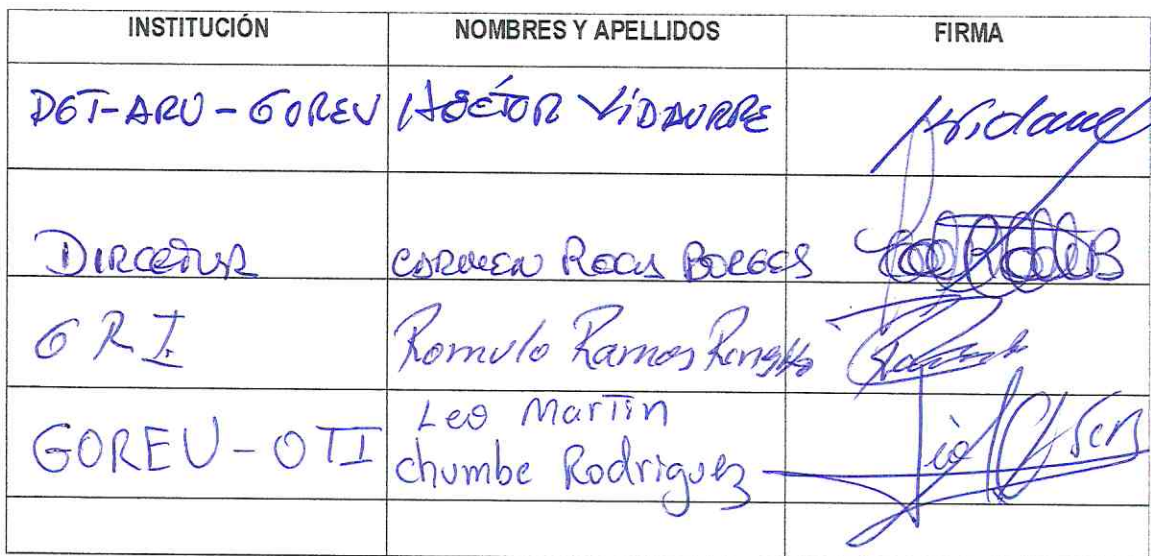 INSTITUCIÓN NOMBRES Y APELLIDOS FIRMA
DGT-ARU-GOREU HÉCTOR VIDAURRE
DIRCETUR CARMEN ROCA BORGES
GRI Romulo Ramos
GOREU-OTI Leo Martin
chumbe Rodriguez